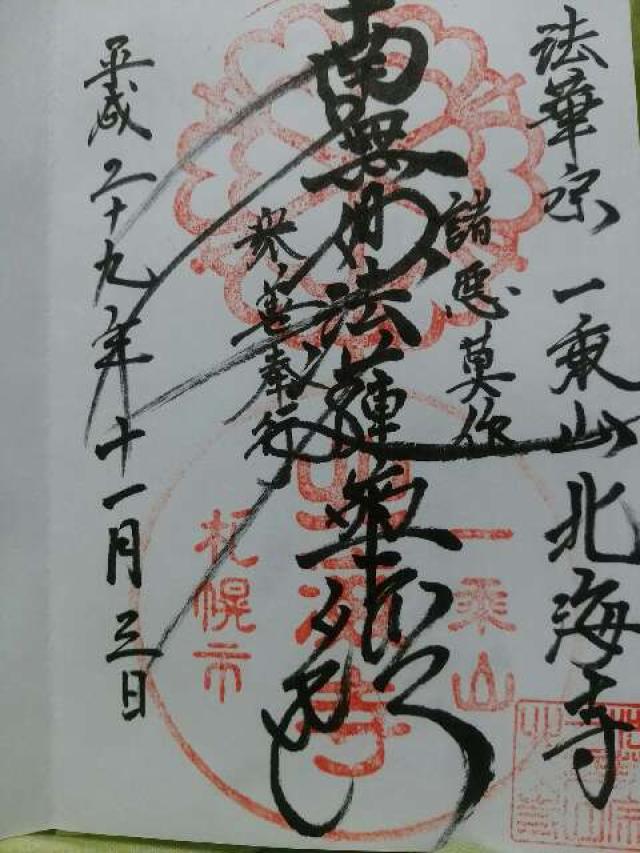 法華宗 一乗山 北海寺
諸悪莫作
南無妙法蓮華経
衆善奉行
平成二十九年十一月三日
一乗山
北海寺
札幌市